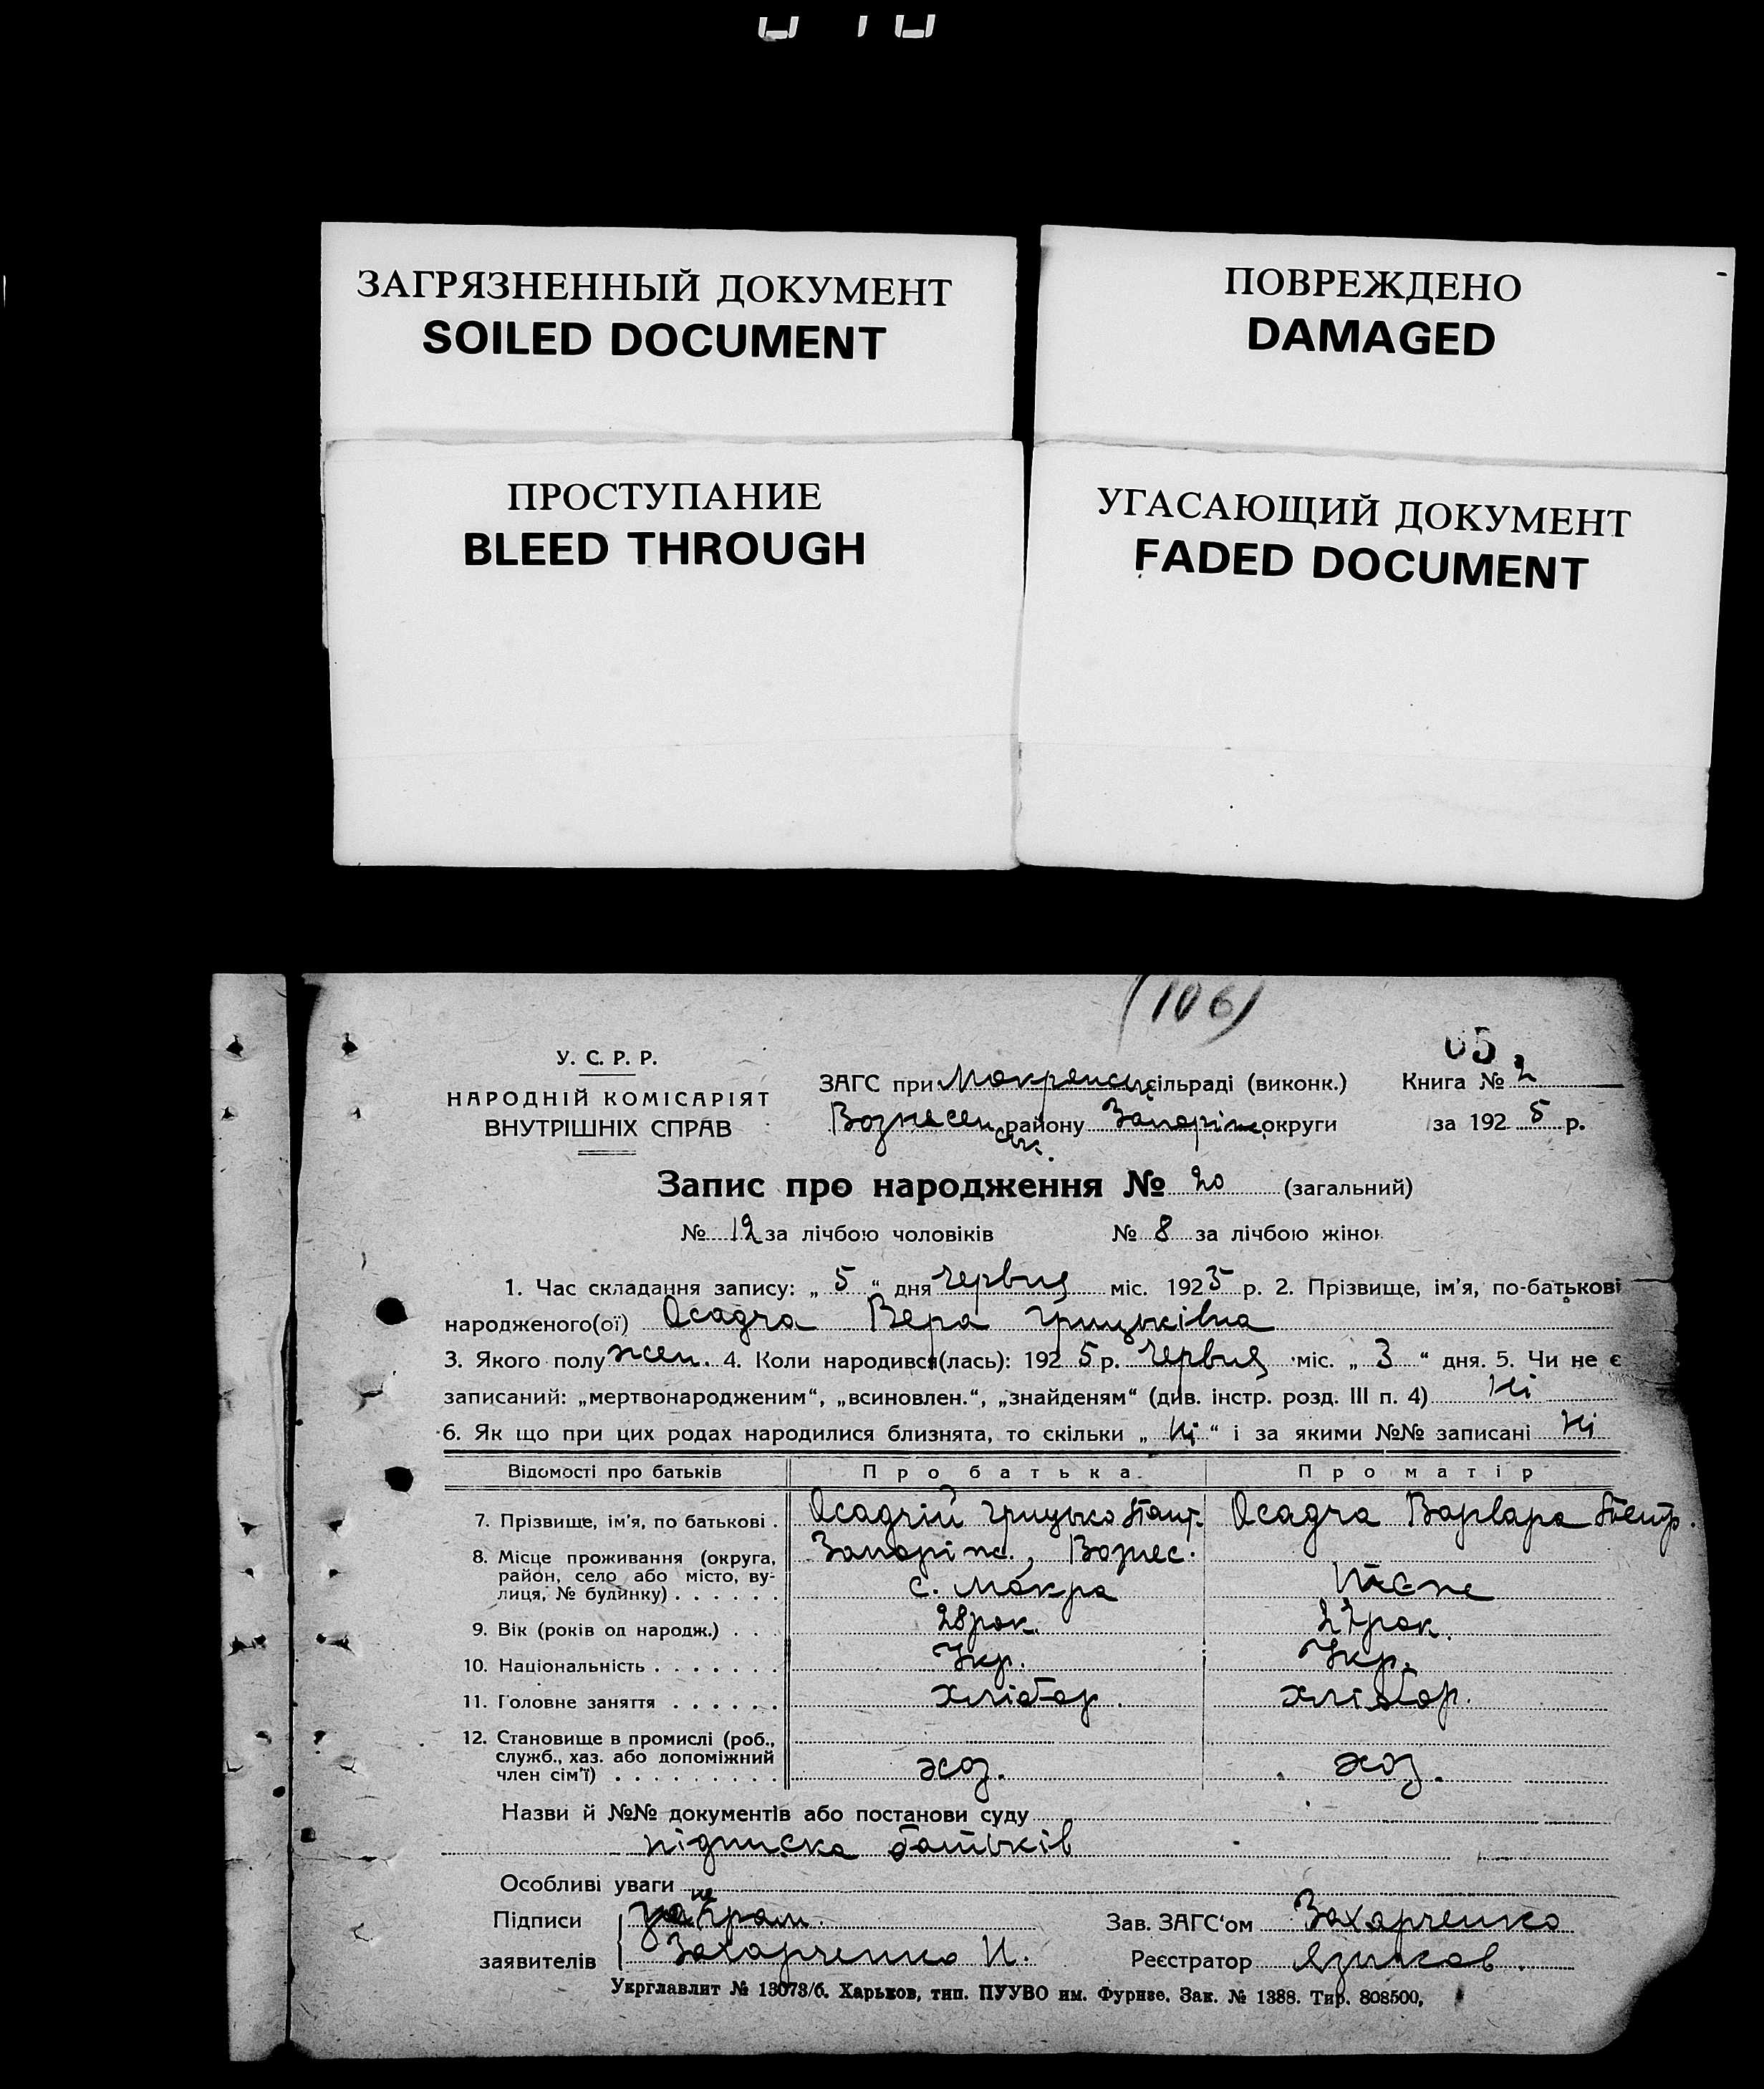 ЗАГРЯЗНЕННЫЙ ДОКУМЕНТ
SOILED DOCUMENT
ПОВРЕЖДЕНО
DAMAGED
ПРОСТУПАНИЕ
BLEED THROUGH
УГАСАЮЩИЙ ДОКУМЕНТ
FADED DOCUMENT
(106)
65
У. С. Р. Р.
НАРОДНІЙ КОМІСАРІЯТ
ВНУТРІШНІХ СПРАВ
ЗАГС при Мокрянськ. сільраді (виконк.)
Вознесенськ. району Запоріж. округи
Книга № 2
за 1925 р.
Запис про народження № 20 (загальний)
№ 12 за лічбою чоловіків № 8 за лічбою жінок
1. Час складання запису: „ 5 “ дня червня міс. 1925 р. 2. Прізвище, ім'я, по-батькові
народженого(ої) Осадча Вера Грицьківна
3. Якого полу жен. 4. Коли народився(лась): 1925 р. червня міс. „ 3 “ дня. 5. Чи не є
записаний: „мертвонародженим“, „всиновлен.“, „знайденям“ (див. інстр. розд. III п. 4) Ні
6. Як що при цих родах народилися близнята, то скільки „ Ні “ і за якими №№ записані Ні
Відомості про батьків Про батька Про матір
7. Прізвище, ім'я, по батькові . Осадчій Грицько Осадча Варвара Петр.
8. Місце проживання (округа, Запоріж., Вознес.
район, село або місто, ву-
лиця, № будинку) . . . . . . с. Мокра Теє-же
9. Вік (років од народж.) . . . 28 рок. 27 рок.
10. Національність . . . . . . . Укр. Укр.
11. Головне заняття . . . . . . хлібор. хлібор.
12. Становище в промислі (роб.,
служб., хаз. або допоміжний
член сім'ї) . . . . . . . . . хоз. хоз.
Назви й №№ документів або постанови суду
підписка батьків
Особливі уваги
Підписи за неграм. Зав. ЗАГС'ом Захарченко
заявителів Захарченко И. Реєстратор Язиков
Укрглавлит № 13073/б. Харьков, тип. ПУУВО им. Фрунзе. Зак. № 1388. Тир. 808500,